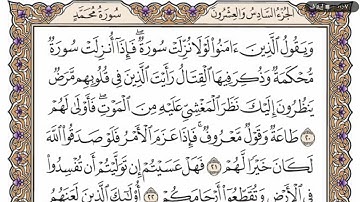 الجزء السادس والعشرون سورة محمد
وَيَقُولُ ٱلَّذِينَ ءَامَنُوا۟ لَوْلَا نُزِّلَتْ سُورَةٌ ۖ فَإِذَآ أُنزِلَتْ سُورَةٌ
مُّحْكَمَةٌ وَذُكِرَ فِيهَا ٱلْقِتَالُ ۙ رَأَيْتَ ٱلَّذِينَ فِى قُلُوبِهِم مَّرَضٌ
يَنظُرُونَ إِلَيْكَ نَظَرَ ٱلْمَغْشِىِّ عَلَيْهِ مِنَ ٱلْمَوْتِ ۖ فَأَوْلَىٰ لَهُمْ
٢٠ طَاعَةٌ وَقَوْلٌ مَّعْرُوفٌ ۚ فَإِذَا عَزَمَ ٱلْأَمْرُ فَلَوْ صَدَقُوا۟ ٱللَّهَ
لَكَانَ خَيْرًا لَّهُمْ ٢١ فَهَلْ عَسَيْتُمْ إِن تَوَلَّيْتُمْ أَن تُفْسِدُوا۟
فِى ٱلْأَرْضِ وَتُقَطِّعُوٓا۟ أَرْحَامَكُمْ ٢٢ أُو۟لَـٰٓئِكَ ٱلَّذِينَ لَعَنَهُمُ